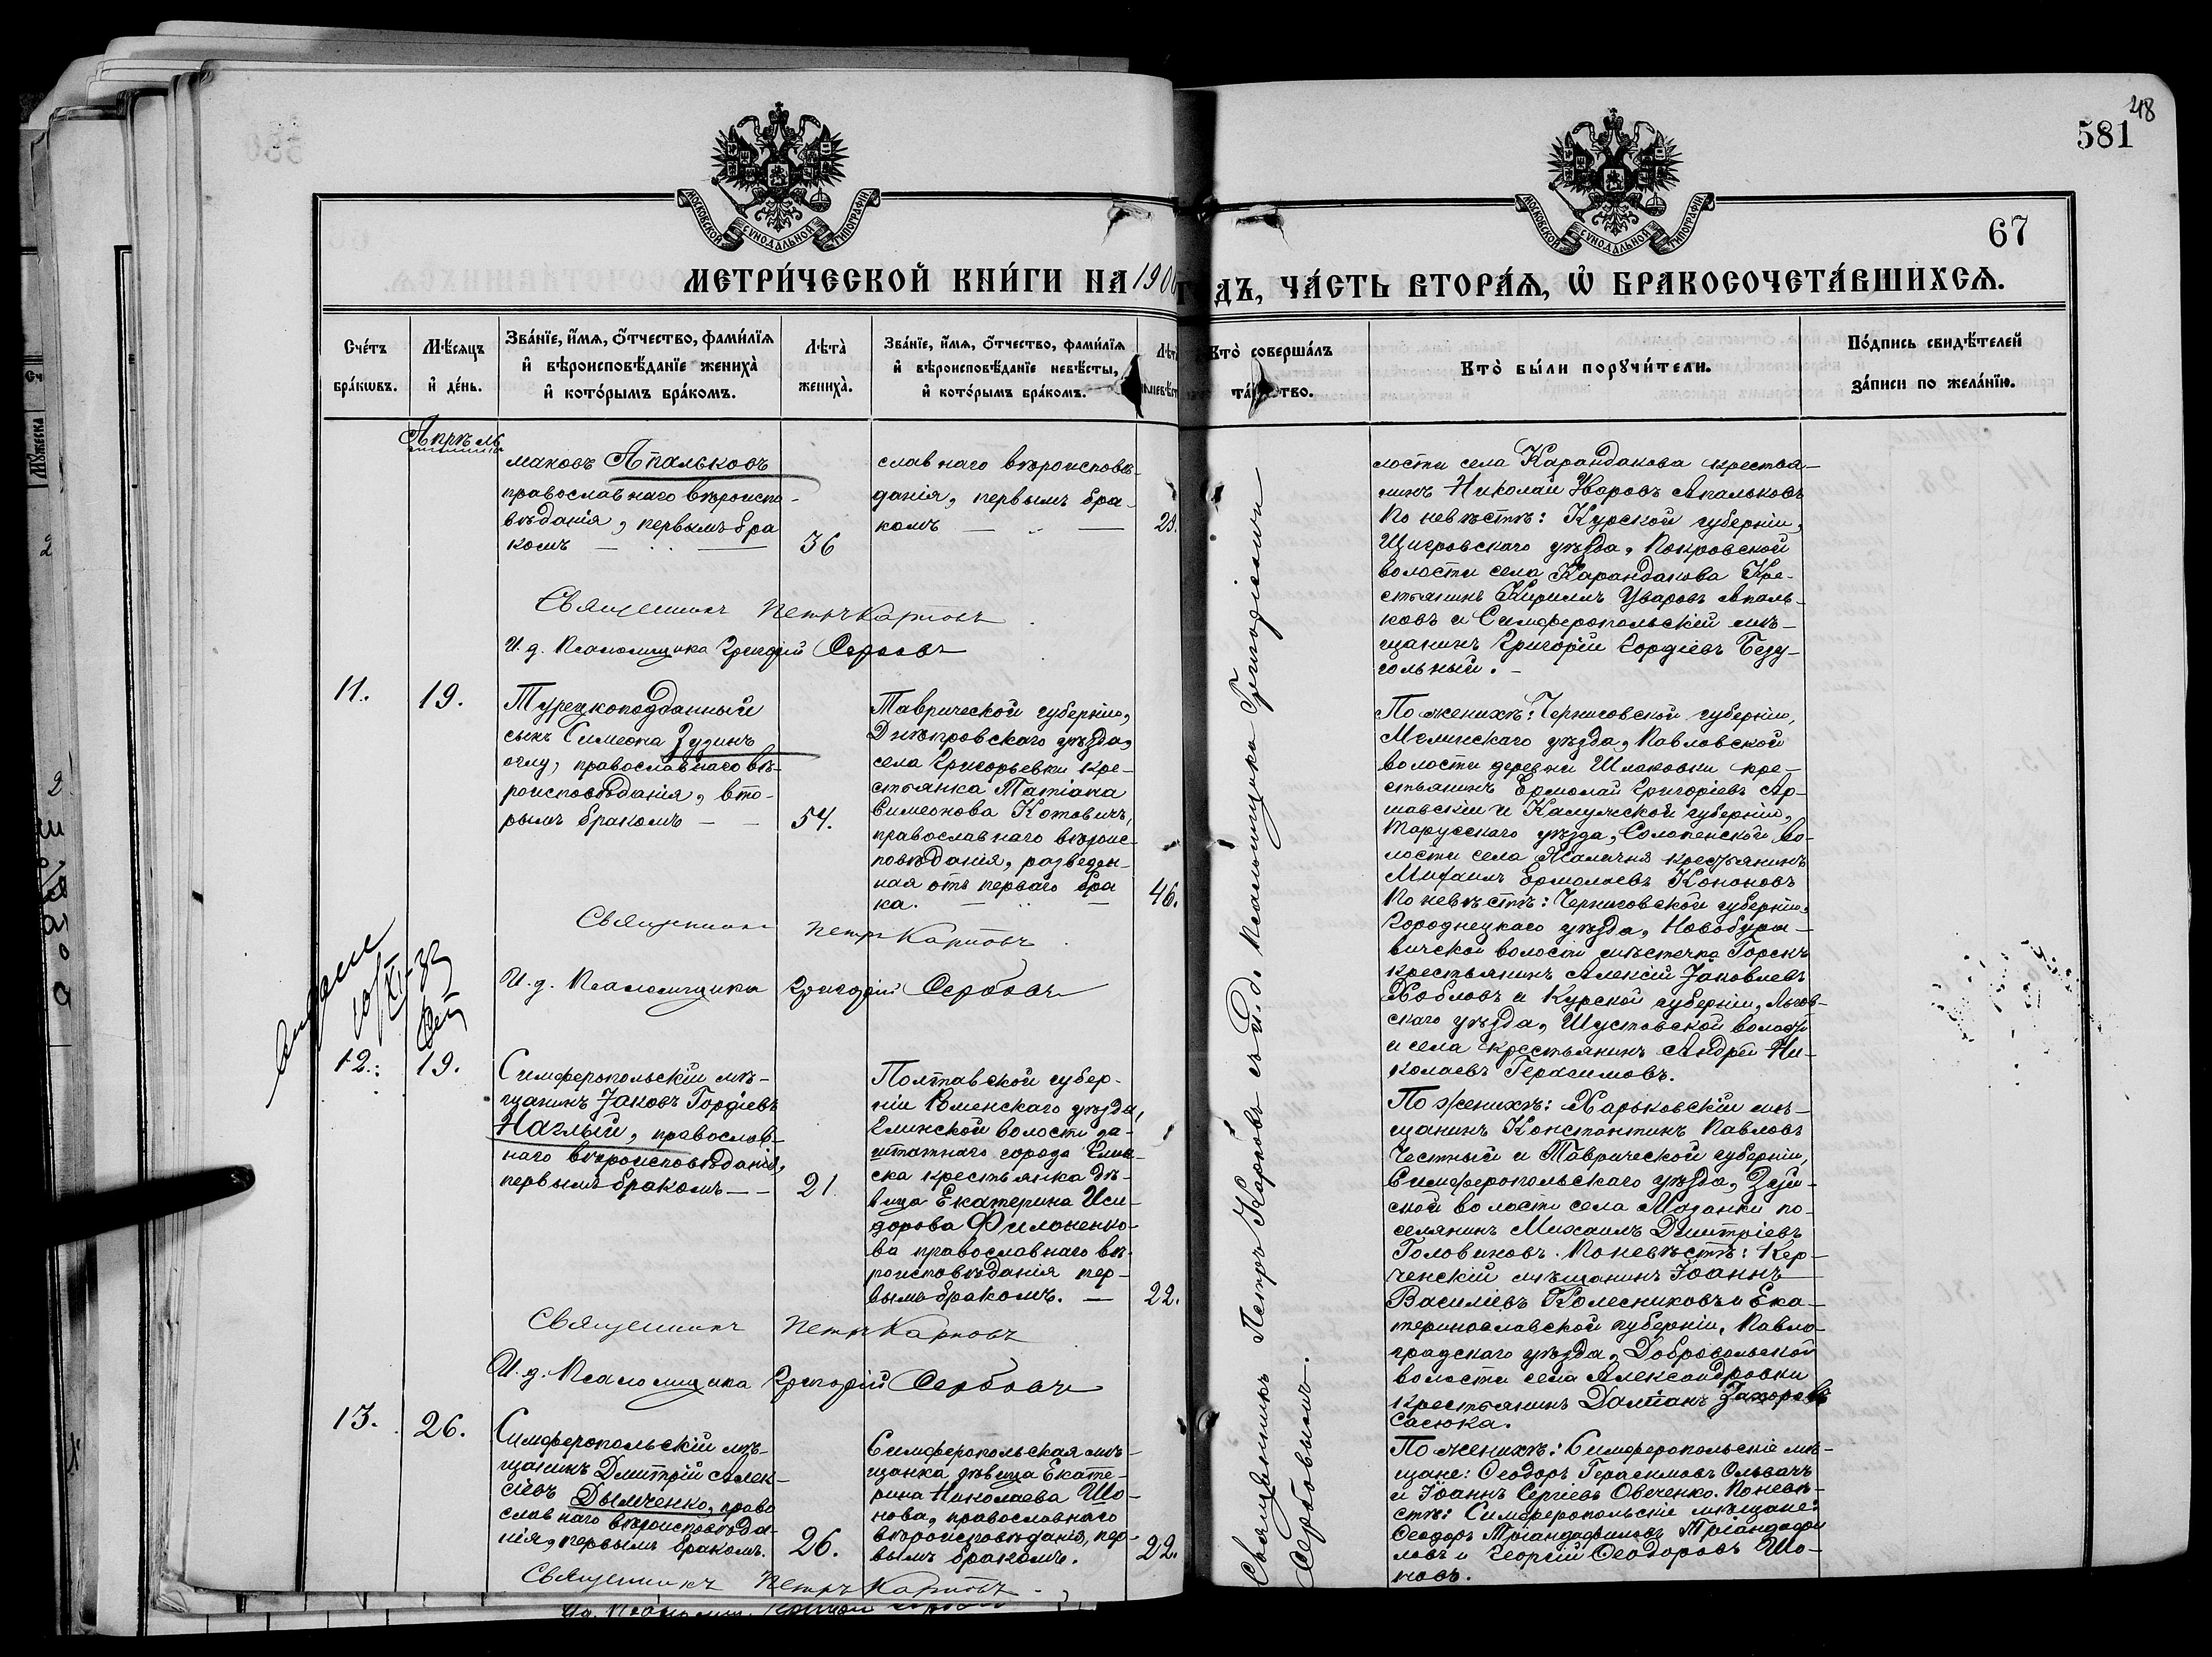 48
581
67
МОСКОВСКОЙ СУНОДАЛЬНОЙ ТИПОГРАФІИ
МОСКОВСКОЙ СУНОДАЛЬНОЙ ТИПОГРАФІИ
МЕТРИ́ЧЕСКОЙ КНИ́ГИ НА 1906 ГОДЪ, ЧА́СТЬ ВТОРА́Ѧ, Ѡ БРАКОСОЧЕТА́ВШИХСѦ.
Сче́тъ бра́кѡвъ.
Мѣ́сяцъ и де́нь.
Зва́нїе, и́мѧ, ѻ́тчество, фами́лїѧ
и вѣроисповѣ́данїе жениха̀
и кото́рымъ бра́комъ.
Лѣта̀
жениха̀.
Зва́нїе, и́мѧ, ѻ́тчество, фами́лїѧ
и вѣроисповѣ́данїе невѣ́сты,
и кото́рымъ бра́комъ.
Кто̀ соверша́лъ
та́инство.
Кто̀ бы́ли порꙋчи́тели.
По́дпись свидѣ́телей
за́писи по жела́нїю.
Апрѣль
маковъ Апальковъ
православнаго вѣроиспо-
вѣданія, первымъ бра
комъ
36
славнаго вѣроисповѣ-
данія, первымъ бра-
комъ
Священникъ Петръ Карповъ
И. д. Псаломщика Григорій Сербовъ
лости села Карандакова крестья-
нинъ Николай Уваровъ Апальковъ
По невѣстѣ: Курской губерніи,
Щигровскаго уѣзда, Покровской
волости села Карандакова Кре-
стьянинъ Кириллъ Уваровъ Апаль-
ковъ и Симферопольскій мѣ-
щанинъ Григорій Гордіевъ Безу-
гольный.
11.
19.
Турецкоподданный
сынъ Симеона Зузинъ
оглу, православнаго вѣ-
роисповѣданія, вто-
рымъ бракомъ
54.
Таврической губерніи,
Днѣпровскаго уѣзда,
села Григорьевки кре-
стьянка Татіана
Симеонова Котовичъ,
православнаго вѣроис-
повѣданія, разведен-
ная отъ перваго бра
ка.
46.
Священникъ Петръ Карповъ
И. д. Псаломщика Григорій Сербовъ
По женихѣ: Черниговской губерніи,
Мглинскаго уѣзда, Павловской
волости деревни Шлаковки кре-
стьянинъ Ермолай Григоріевъ Ар-
шавскій и Калужской губерніи,
Тарусскаго уѣзда, Солопенской во-
лости села Жаличня крестьянинъ
Михаилъ Ермолаевъ Кононовъ
По невѣстѣ: Черниговской губерніи,
Городнецкаго уѣзда, Новобура-
вичской волости мѣстечка Горскъ
крестьянинъ Алексій Іаковлевъ
Хобловъ и Курской губерніи, Льгов-
скаго уѣзда, Шустовской волости
и села крестьянинъ Андрей Ни-
колаевъ Герасимовъ.
12.
19.
Симферопольскій мѣ-
щанинъ Іаковъ Гордіевъ
Наглый, православ-
наго вѣроисповѣданія,
первымъ бракомъ
21.
Полтавской губер-
ніи Роменскаго уѣзда,
Глинской волости за-
штатнаго города Глин-
ска крестьянка дѣ-
вица Екатерина Иси-
дорова Филоненко-
ва православнаго вѣ-
роисповѣданія пер-
вымъ бракомъ.
22.
Священникъ Петръ Карповъ
И. д. Псаломщика Григорій Сербовъ
По женихѣ: Харьковскій мѣ-
щанинъ Константинъ Павловъ
Честный и Таврической губерніи,
Симферопольскаго уѣзда, Зуй-
ской волости села Мазанки по-
селянинъ Михаилъ Дмитріевъ
Головиновъ. По невѣстѣ: Кер-
ченскій мѣщанинъ Іоаннъ
Василіевъ Колесниковъ и Ека-
теринославской губерніи, Павло-
градскаго уѣзда, Добровольской
волости села Александровки
крестьянинъ Даміанъ Захаровъ
Сасюка.
13.
26.
Симферопольскій мѣ-
щанинъ Дмитрій Алек-
сіевъ Дымченко, право
славнаго вѣроисповѣда-
нія, первымъ бракомъ.
26.
Симферопольская мѣ-
щанка дѣвица Екате-
рина Николаева Шо-
нова, православнаго
вѣроисповѣданія, пер-
вымъ бракомъ.
22.
Священникъ Петръ Карповъ
По женихѣ: Симферопольскіе мѣ-
щане: Ѳеодоръ Герасимовъ Ольвачъ
и Іоаннъ Сергіевъ Овеченко. По невѣ-
стѣ: Симферопольскіе мѣщане:
Ѳеодоръ Тріандафиловъ Тріандафи
ловъ и Георгій Ѳеодоровъ Шо-
новъ.
Священникъ Петръ Карповъ съ и. д. Псаломщика Григоріемъ
Сербовымъ.